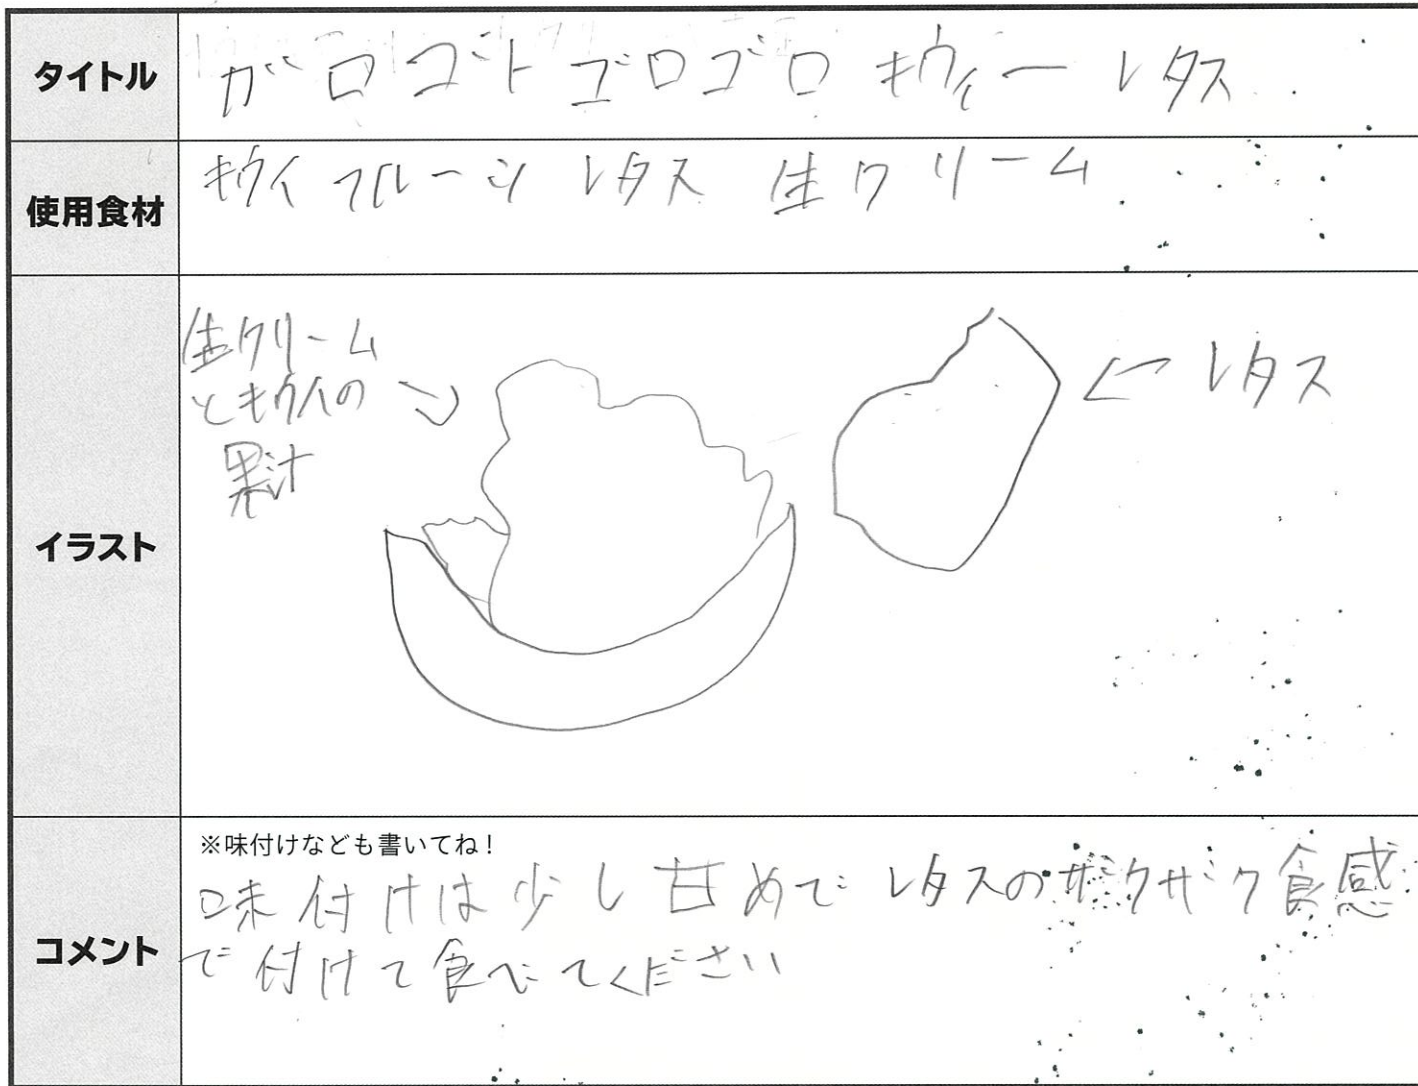 タイトル
ガロゴトゴロゴロ キウィー レタス
使用食材
キウイフルーツ レタス 生クリーム
イラスト
生クリーム
とキウイの
果汁
レタス
コメント
※味付けなども書いてね！
味付けは少し甘めで レタスのザクザク食感
で付けて食べてください